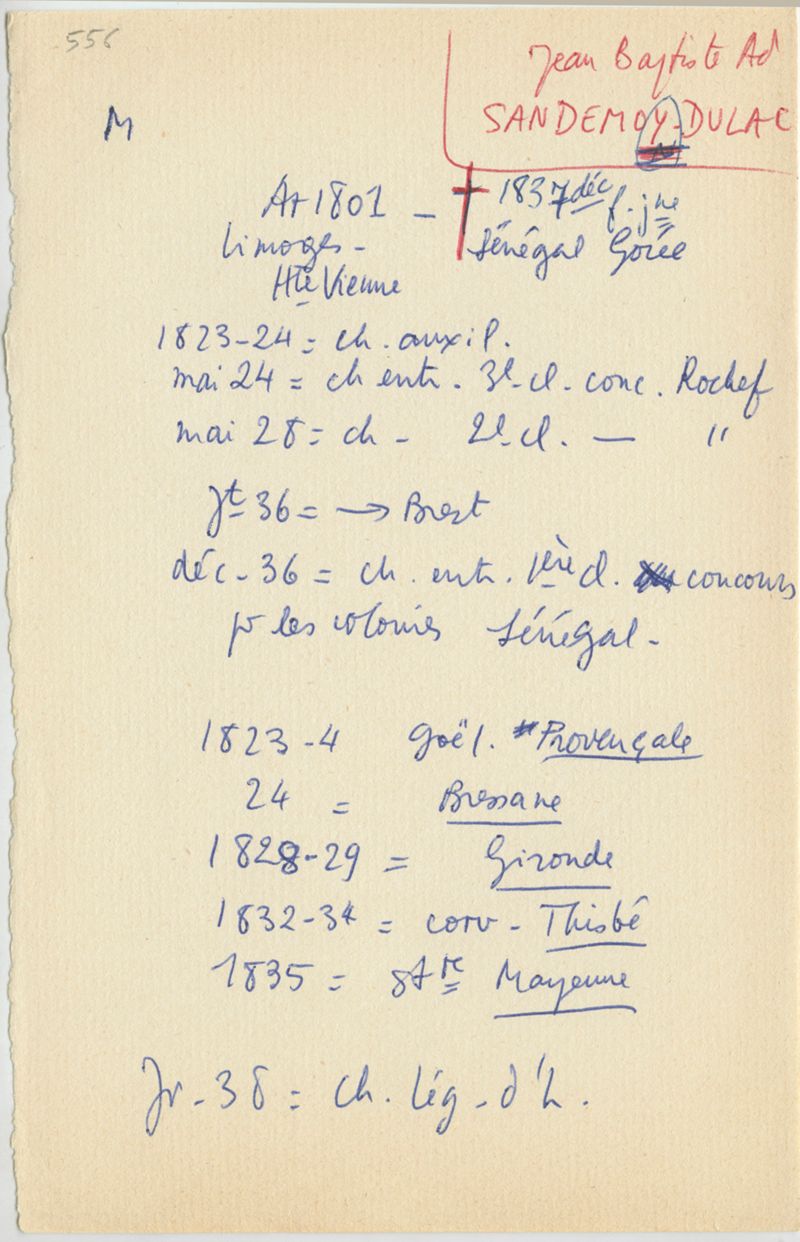 556
Jean Baptiste Ad
SANDEMOY-DULAC
M
At 1801 - † 1837 déc f. jne
Limoges - Sénégal Gorée
Hte Vienne
1823-24 = ch. auxil.
mai 24 = ch entr. 3e cl. conc. Rochef
mai 28 = ch - 2e cl. — "
Jt 36 = → Brest
déc - 36 = ch. entr. 1ère cl. concours
pr les colonies Sénégal -
1823-4 goël. Provençale
24 = Bressane
1828-29 = Gironde
1832-34 = corv - Thisbé
1835 = gAre Mayenne
Jr - 38 = ch. Lég - d'h.